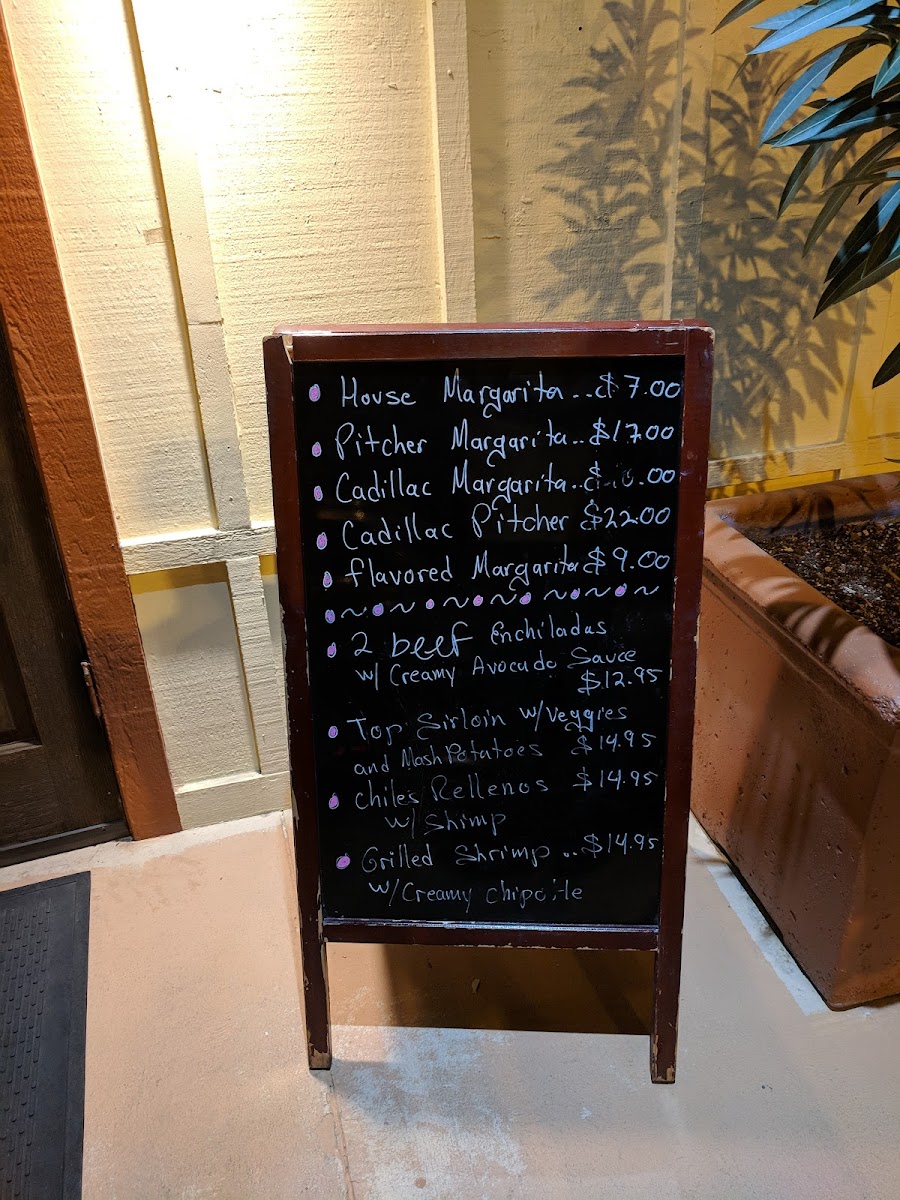 House Margarita..$7.00
Pitcher Margarita..$17.00
Cadillac Margarita..
Cadillac Pitcher $22.00
flavored Margarita $9.00
2 beef Enchiladas
w/ Creamy Avocado Sauce
$12.95
Top Sirloin w/Veggies
and Mash Potatoes $14.95
Chiles Rellenos $14.95
w/ Shimp
Grilled Shrimp..$14.95
w/Creamy Chipotle